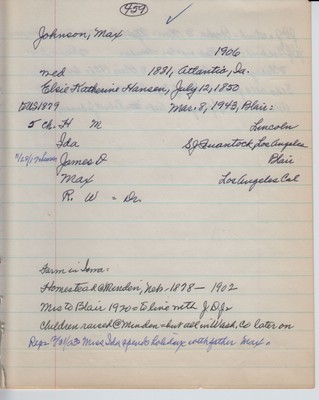 459
Johnson, Max
1906
wed 1881, Atlantic, Ia.
Elsie Katherine Hansen, July 12, 1850
Mar. 8, 1943, Blair:
5 ch. H M Lincoln
Ida S J Quantock, Los Angeles
James D Blair
Max Los Angeles Cal
R. W = Dr.
Farm in Iowa:
Homestead @ Minden, Neb - 1878 - 1902
Mrs to Blair 1920 = to live with J.D.J.
Children raised @ Minden = but all in Wash. Co later on
Miss Ida spends holidays with father Max.